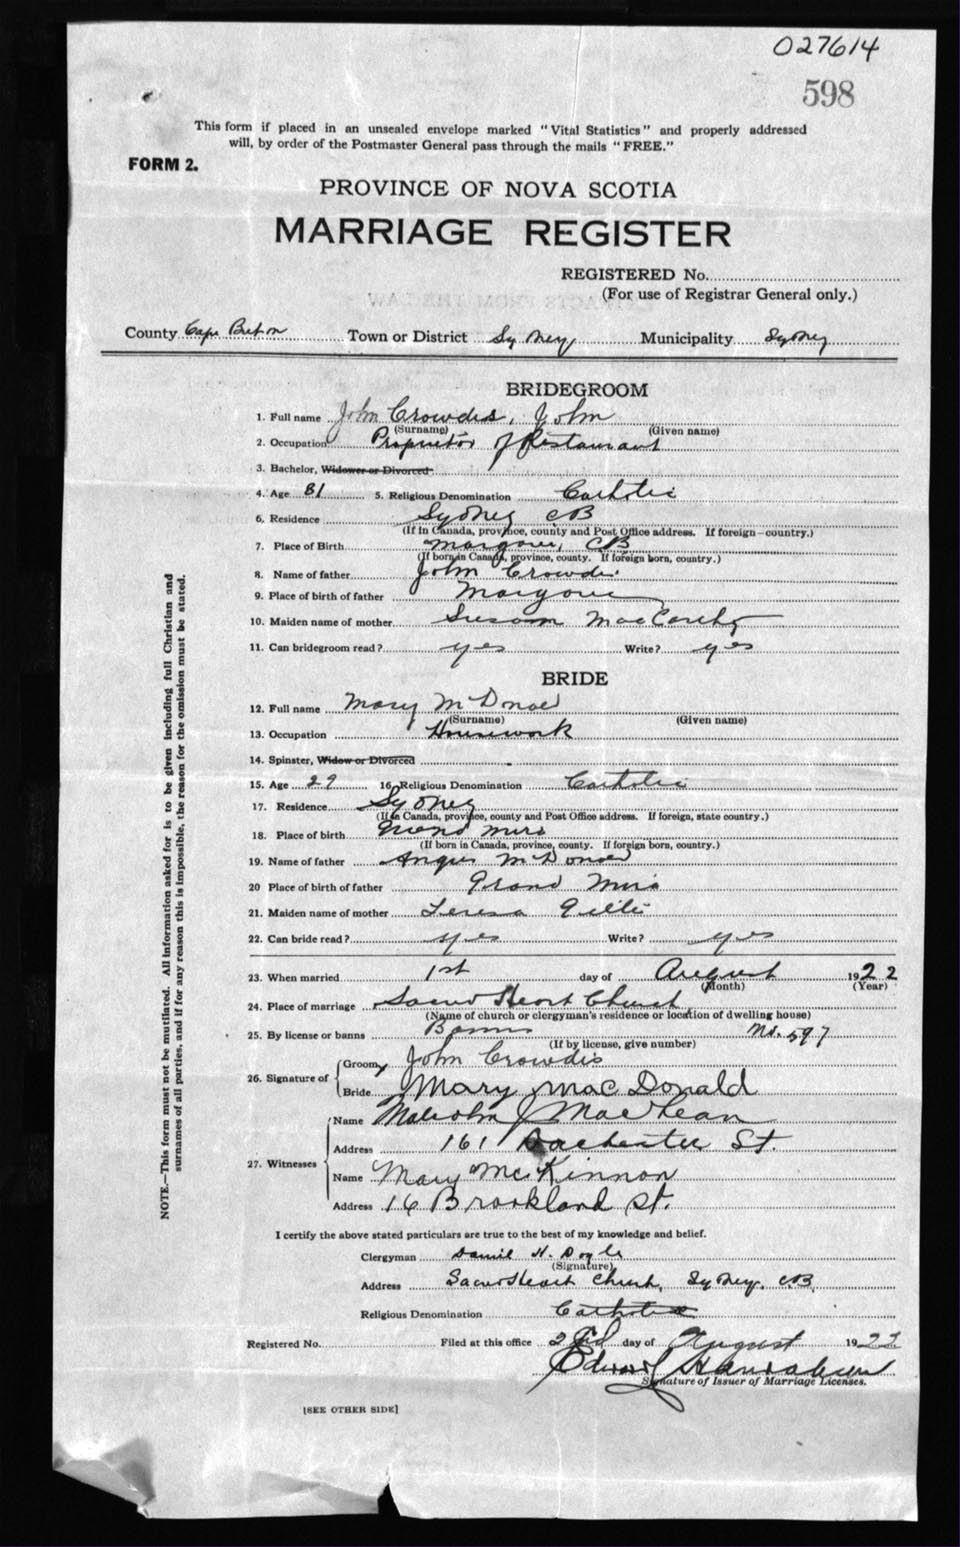 027614
598
This form if placed in an unsealed envelope marked "Vital Statistics" and properly addressed
will, by order of the Postmaster General pass through the mails "FREE."
FORM 2.
PROVINCE OF NOVA SCOTIA
MARRIAGE REGISTER
REGISTERED No.
(For use of Registrar General only.)
County Cape Breton Town or District Sydney Municipality Sydney
BRIDEGROOM
1. Full name John Crowdis, John
(Surname) (Given name)
2. Occupation Proprietor of Restaurant
3. Bachelor, Widower or Divorced
4. Age 31 5. Religious Denomination Catholic
6. Residence Sydney CB
(If in Canada, province, county and Post Office address. If foreign-country.)
7. Place of Birth Margaree, CB
(If born in Canada, province, county. If foreign born, country.)
8. Name of father John Crowdis
9. Place of birth of father Margaree
10. Maiden name of mother Susan MacCarthy
11. Can bridegroom read? yes Write? yes
BRIDE
12. Full name Mary McDonald
(Surname) (Given name)
13. Occupation Housework
14. Spinster, Widow or Divorced
15. Age 29 16. Religious Denomination Catholic
17. Residence Sydney
(If in Canada, province, county and Post Office address. If foreign, state country.)
18. Place of birth Grand Mira
(If born in Canada, province, county. If foreign born, country.)
19. Name of father Angus McDonald
20 Place of birth of father Grand Mira
21. Maiden name of mother Teresa Gillis
22. Can bride read? yes Write? yes
23. When married 1st day of August 1922
(Month) (Year)
24. Place of marriage Sacred Heart Church
(Name of church or clergyman's residence or location of dwelling house)
25. By license or banns Banns No. 597
(If by license, give number)
26. Signature of
Groom John Crowdis
Bride Mary MacDonald
27. Witnesses
Name Malcolm J MacLean
Address 161 Dorchester St.
Name Mary McKinnon
Address 16 Brookland St.
I certify the above stated particulars are true to the best of my knowledge and belief.
Clergyman Daniel H. Doyle
(Signature)
Address Sacred Heart Church, Sydney, CB
Religious Denomination Catholic
Registered No. Filed at this office 2nd day of August 1922
Signature of Issuer of Marriage Licenses.
[SEE OTHER SIDE]
NOTE.—This form must not be mutilated. All information asked for is to be given including full Christian and
surnames of all parties, and if for any reason this is impossible, the reason for the omission must be stated.